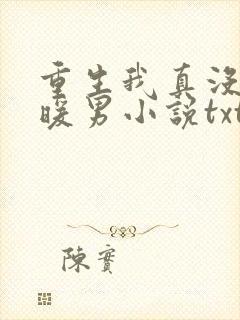 重生我真没
暖男小説txt
陳實